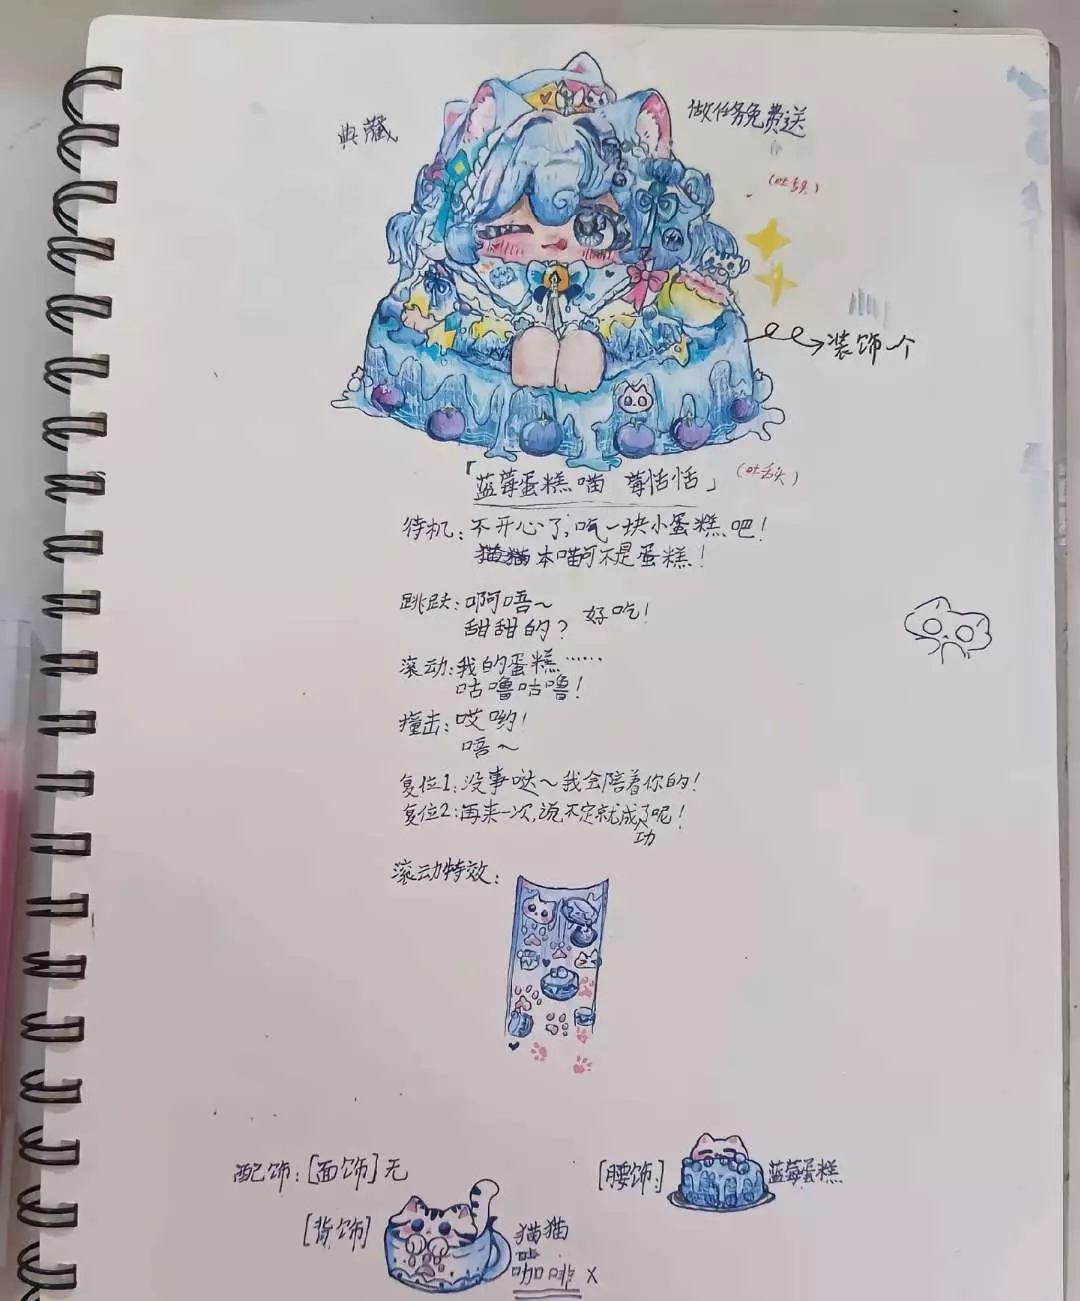 典藏
做任务免费送
(吐舌)
装饰个
「蓝莓蛋糕喵 莓恬恬」
(吐舌头)
待机：不开心了，吃一块小蛋糕吧！
猫猫本喵可不是蛋糕！
跳跃：啊唔～
甜甜的？ 好吃！
滚动：我的蛋糕……
咕噜咕噜！
撞击：哎哟！
唔～
复位1：没事哒～我会陪着你的！
复位2：再来一次，说不定就成功了呢！
滚动特效：
配饰：[面饰]无
[腰饰：] 蓝莓蛋糕
[背饰] 猫猫
咖啡 x